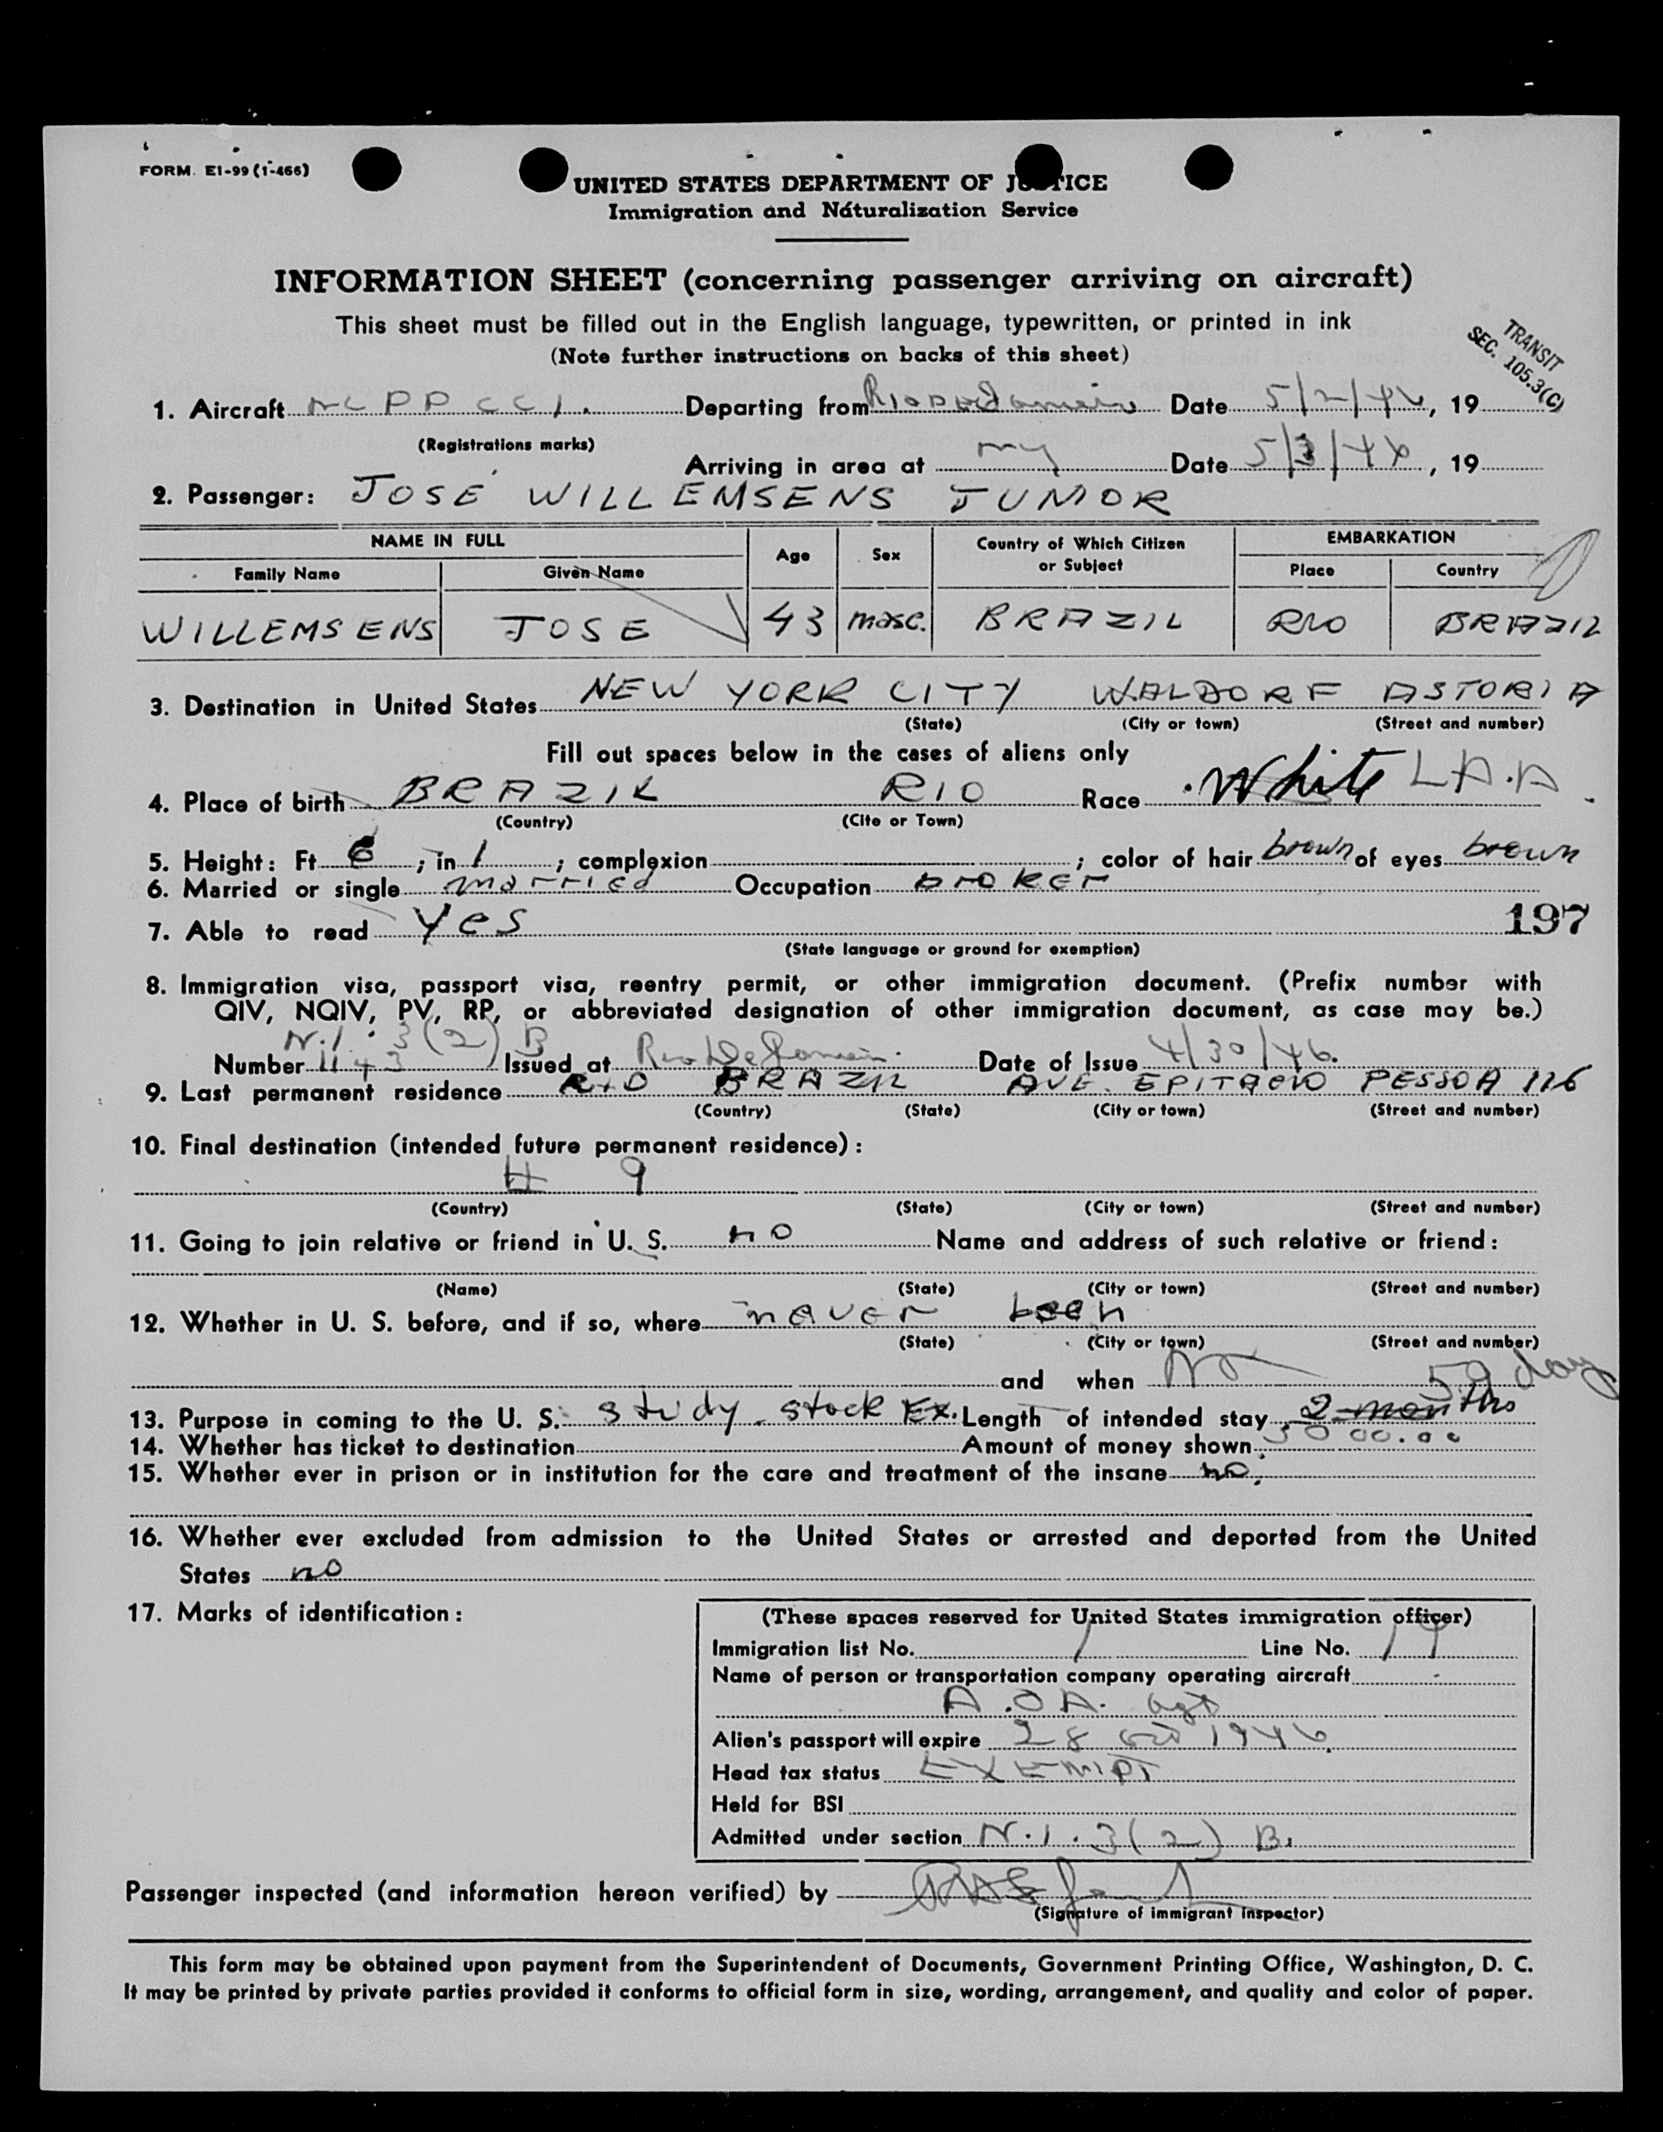 FORM. EI-99 (1-466)
UNITED STATES DEPARTMENT OF JUSTICE
Immigration and Naturalization Service
INFORMATION SHEET (concerning passenger arriving on aircraft)
This sheet must be filled out in the English language, typewritten, or printed in ink
(Note further instructions on backs of this sheet)
TRANSIT
SEC. 105.3(C)
1. Aircraft NC PP CCI. Departing from Rio De Janeiro Date 5/2/46, 19
(Registrations marks)
Arriving in area at NY Date 5/3/46, 19
2. Passenger: JOSÉ WILLEMSENS JUNIOR
NAME IN FULL Age Sex Country of Which Citizen or Subject EMBARKATION
Family Name Given Name Place Country
WILLEMSENS JOSE 43 masc. BRAZIL RIO BRAZIL
3. Destination in United States NEW YORK CITY WALDORF ASTORIA
(State) (City or town) (Street and number)
Fill out spaces below in the cases of aliens only
4. Place of birth BRAZIL RIO Race White L.A.A.
(Country) (Cite or Town)
5. Height: Ft 6; in 1; complexion; color of hair brown of eyes brown
6. Married or single married Occupation broker
7. Able to read yes 197
(State language or ground for exemption)
8. Immigration visa, passport visa, reentry permit, or other immigration document. (Prefix number with
QIV, NQIV, PV, RP, or abbreviated designation of other immigration document, as case may be.)
N.I. 3(2) B
Number 1143 Issued at Rio De Janeiro. Date of Issue 4/30/46.
9. Last permanent residence RIO BRAZIL AVE. EPITACIO PESSOA 126
(Country) (State) (City or town) (Street and number)
10. Final destination (intended future permanent residence):
H 9
(Country) (State) (City or town) (Street and number)
11. Going to join relative or friend in U. S. no Name and address of such relative or friend:
(Name) (State) (City or town) (Street and number)
12. Whether in U. S. before, and if so, where never been
(State) (City or town) (Street and number)
and when No 59 days
13. Purpose in coming to the U. S. study stock Ex. Length of intended stay 2 months
14. Whether has ticket to destination Amount of money shown 5000.00
15. Whether ever in prison or in institution for the care and treatment of the insane no;
16. Whether ever excluded from admission to the United States or arrested and deported from the United
States no
17. Marks of identification:
(These spaces reserved for United States immigration officer)
Immigration list No. 1 Line No. 19
Name of person or transportation company operating aircraft
A.O.A. agt
Alien's passport will expire 28 Oct 1946
Head tax status EXEMPT
Held for BSI
Admitted under section N.I. 3(2) B.
Passenger inspected (and information hereon verified) by
(Signature of immigrant inspector)
This form may be obtained upon payment from the Superintendent of Documents, Government Printing Office, Washington, D. C.
It may be printed by private parties provided it conforms to official form in size, wording, arrangement, and quality and color of paper.